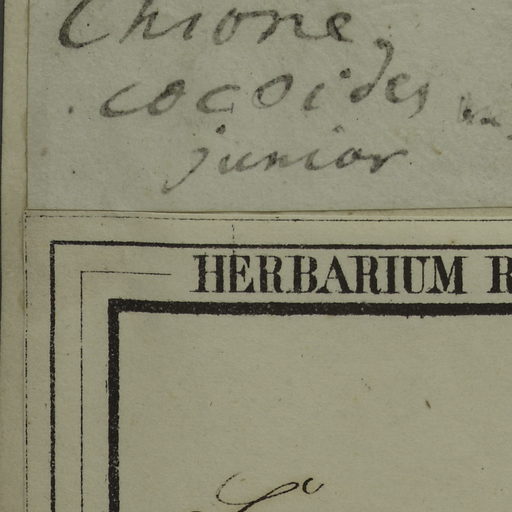 Chione
cocoides
junior
HERBARIUM R